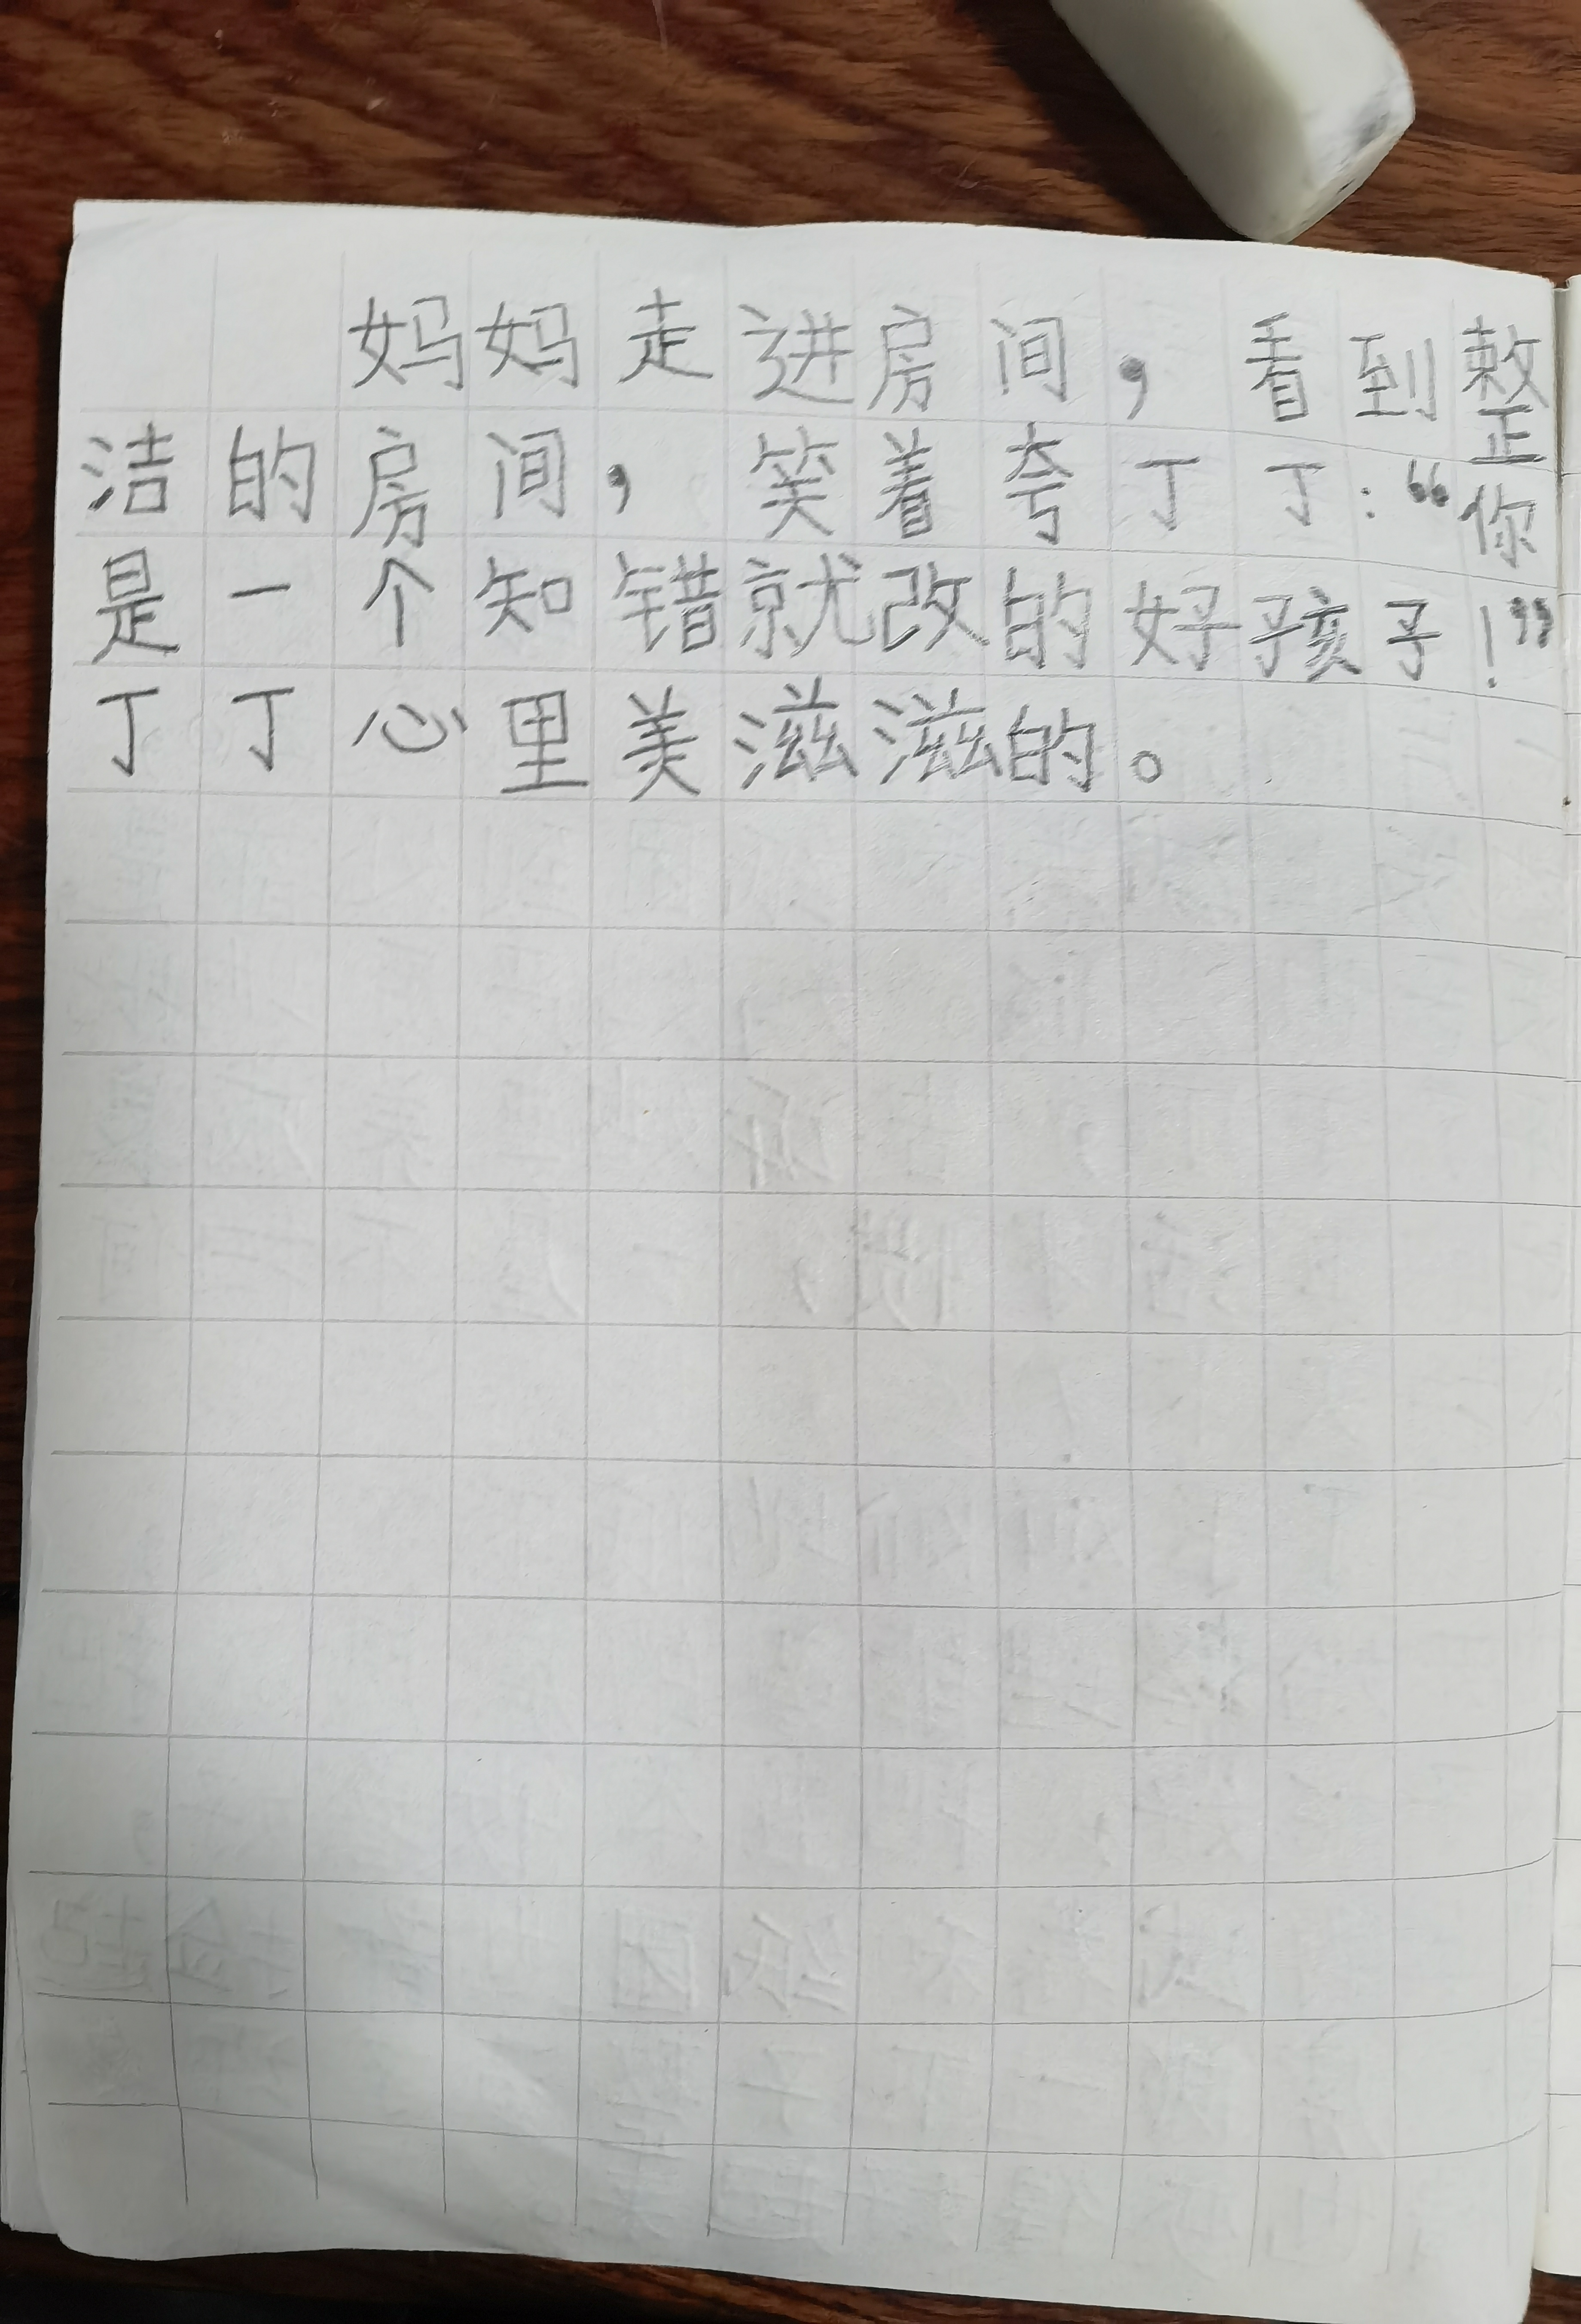 妈妈走进房间，看到整
洁的房间，笑着夸丁丁：“你
是一个知错就改的好孩子！”
丁丁心里美滋滋的。